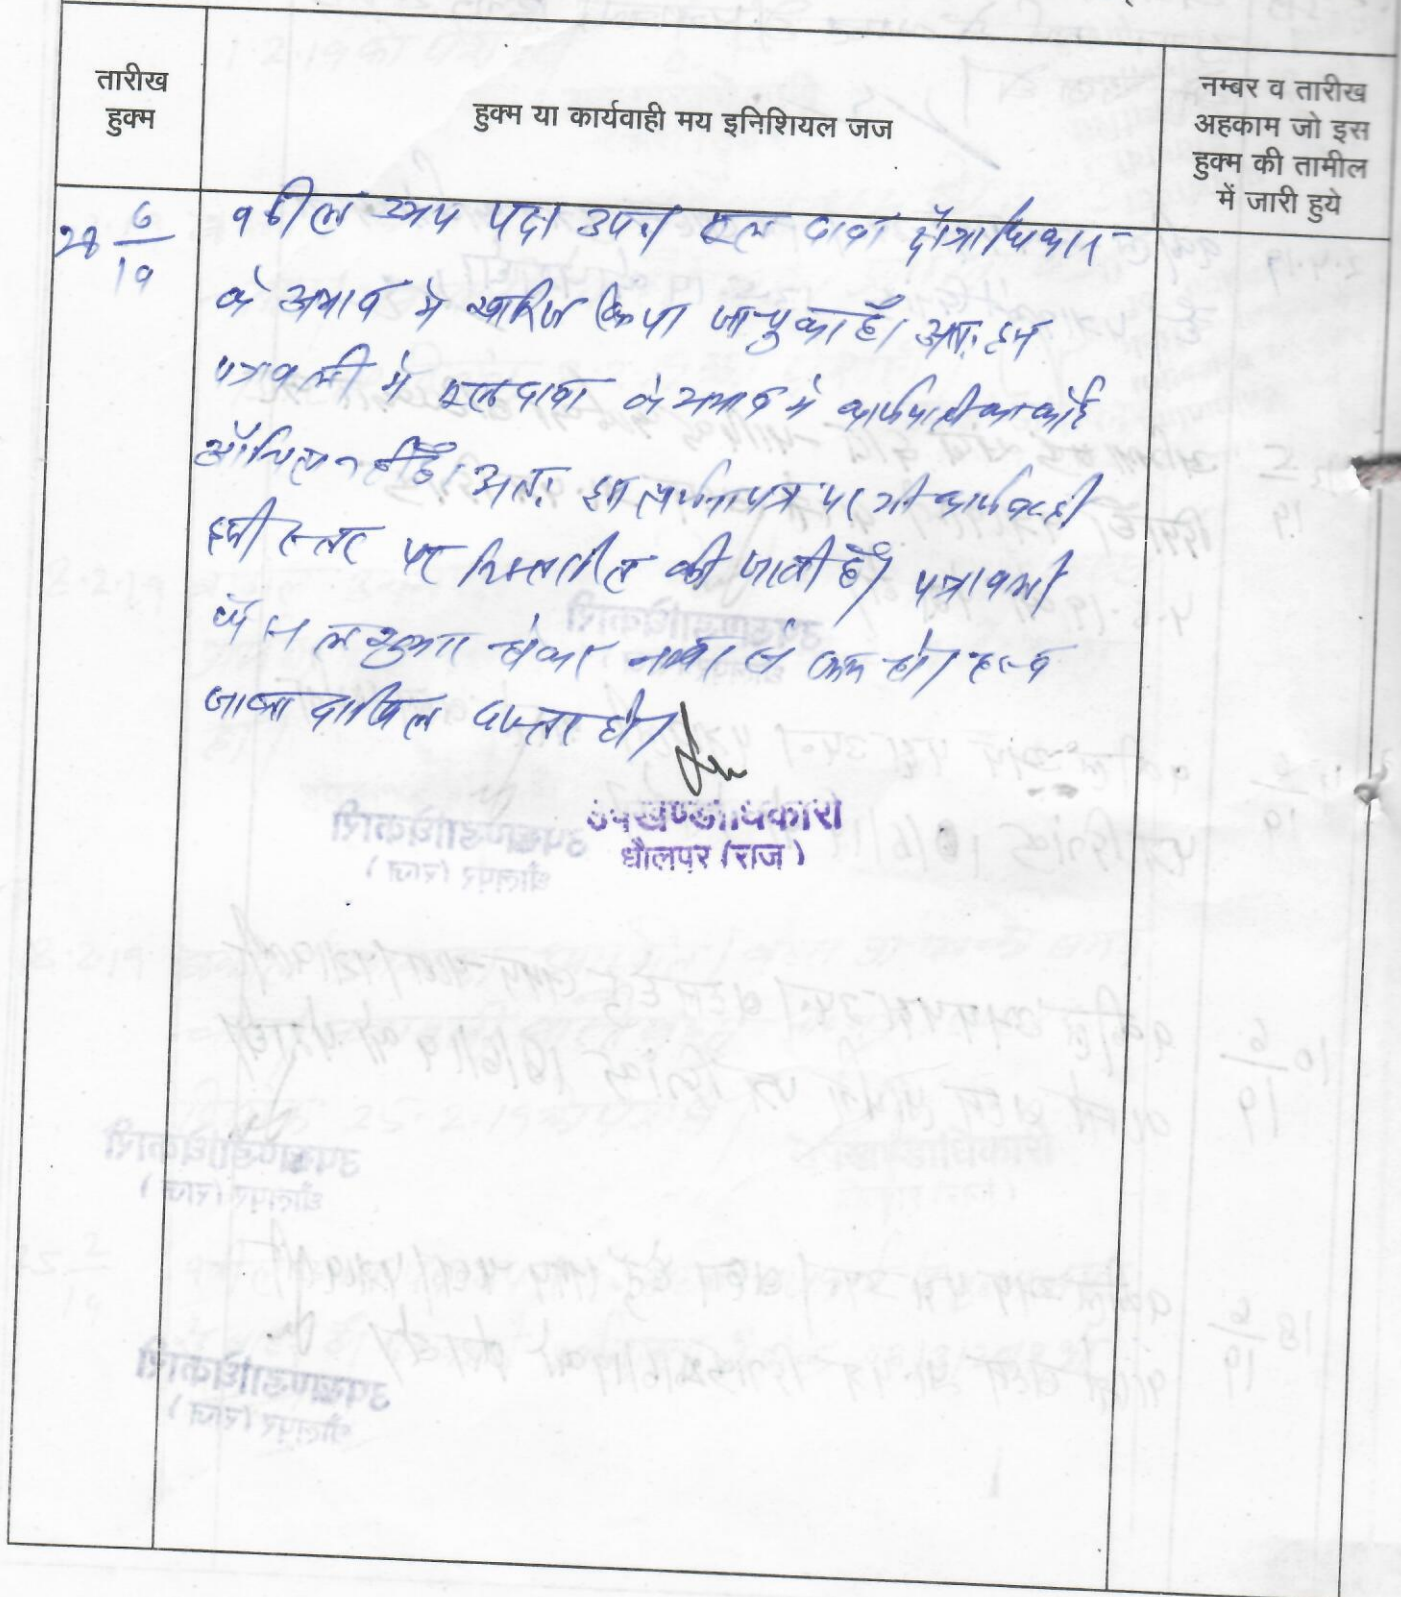 तारीख
हुक्म
हुक्म या कार्यवाही मय इनिशियल जज
नम्बर व तारीख
अहकाम जो इस
हुक्म की तामील
में जारी हुये
28 6/19
वकील उभय पक्ष उप0। मूल दावा क्षेत्राधिकार
के अभाव में खारिज किया जा चुका है। अतः इस
पत्रावली में मूल दावा के अभाव में कार्यवाही का कोई
औचित्य नहीं है। अतः इस प्रार्थना पत्र पर भी कार्यवाही
इसी स्तर पर की जाती है। पत्रावली
फैसल शुमार होकर नम्बर से कम हो। बाद
जाब्ता दाखिल दफ्तर हो।
उपखण्डाधिकारी
धौलपुर (राज)